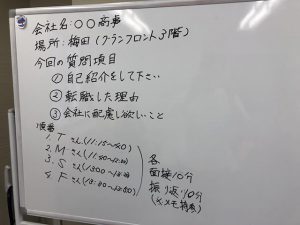 会社名:〇〇商事
場所:梅田(グランフロント3階)
今回の質問項目
①自己紹介をして下さい
②転職した理由
③会社に配慮し欲しいこと
順番
1. Tさん(11:15~
2. Mさん(11:
3. Sさん(13:00~
4. Fさん(
各
面接10分
振り返り10分
(※メモ特番)